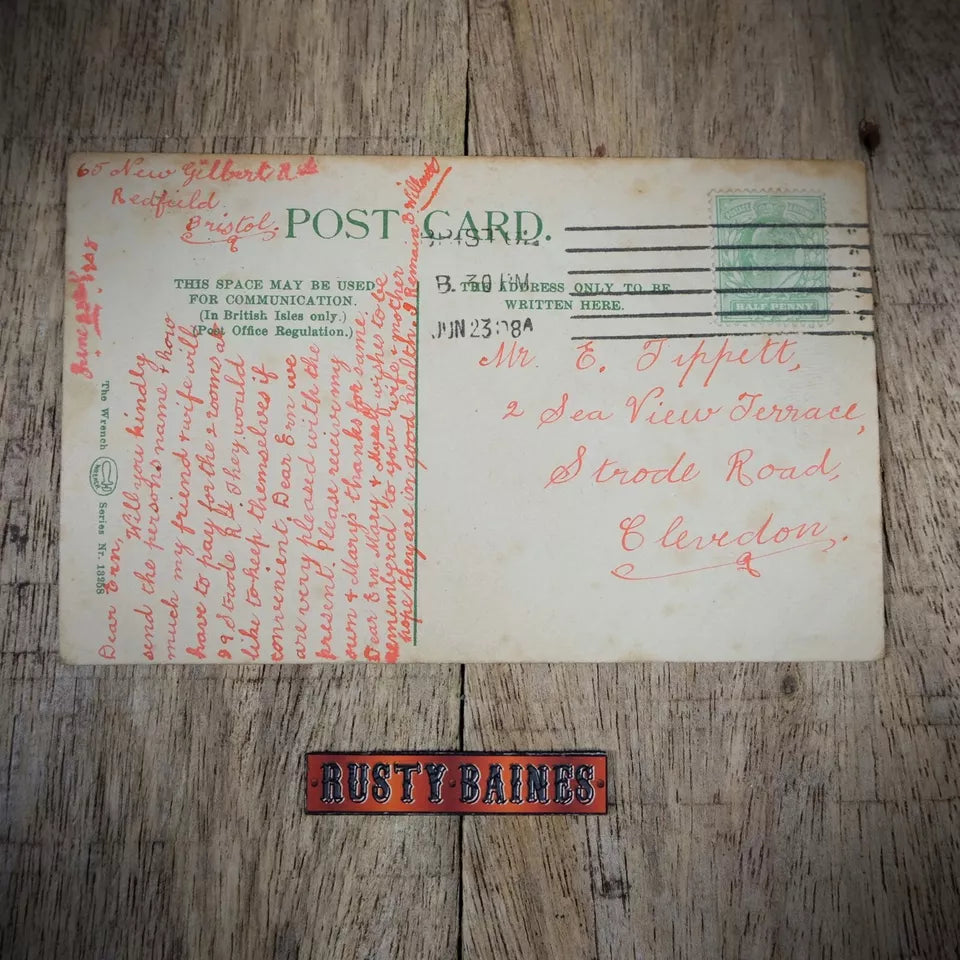 65 New Gilbert Rd
Redfield
Bristol.
June 22nd 1908
POST CARD.
THIS SPACE MAY BE USED
FOR COMMUNICATION.
(In British Isles only.)
(Post Office Regulation.)
THE ADDRESS ONLY TO BE
WRITTEN HERE.
BRISTOL
8. 30 PM
JUN 23 08A
HALF PENNY
Mr. E. Tippett,
2 Sea View Terrace,
Strode Road,
Clevedon.
The Wrench Series Nr. 18968
Dear Ern,
Will you kindly
send the person's name & how
much my friend & wife will
have to pay for the 2 rooms at
29 Strode Rd. They would
like to keep themselves if
convenient. Dear Ern we
are very pleased with the
present. Please receive my
own & Mary's thanks for same.
Dear Ern Mary & Myself wishes to be
remembered to your wife & mother
hope they are in good health. I Remain B
RUSTY·BAINES